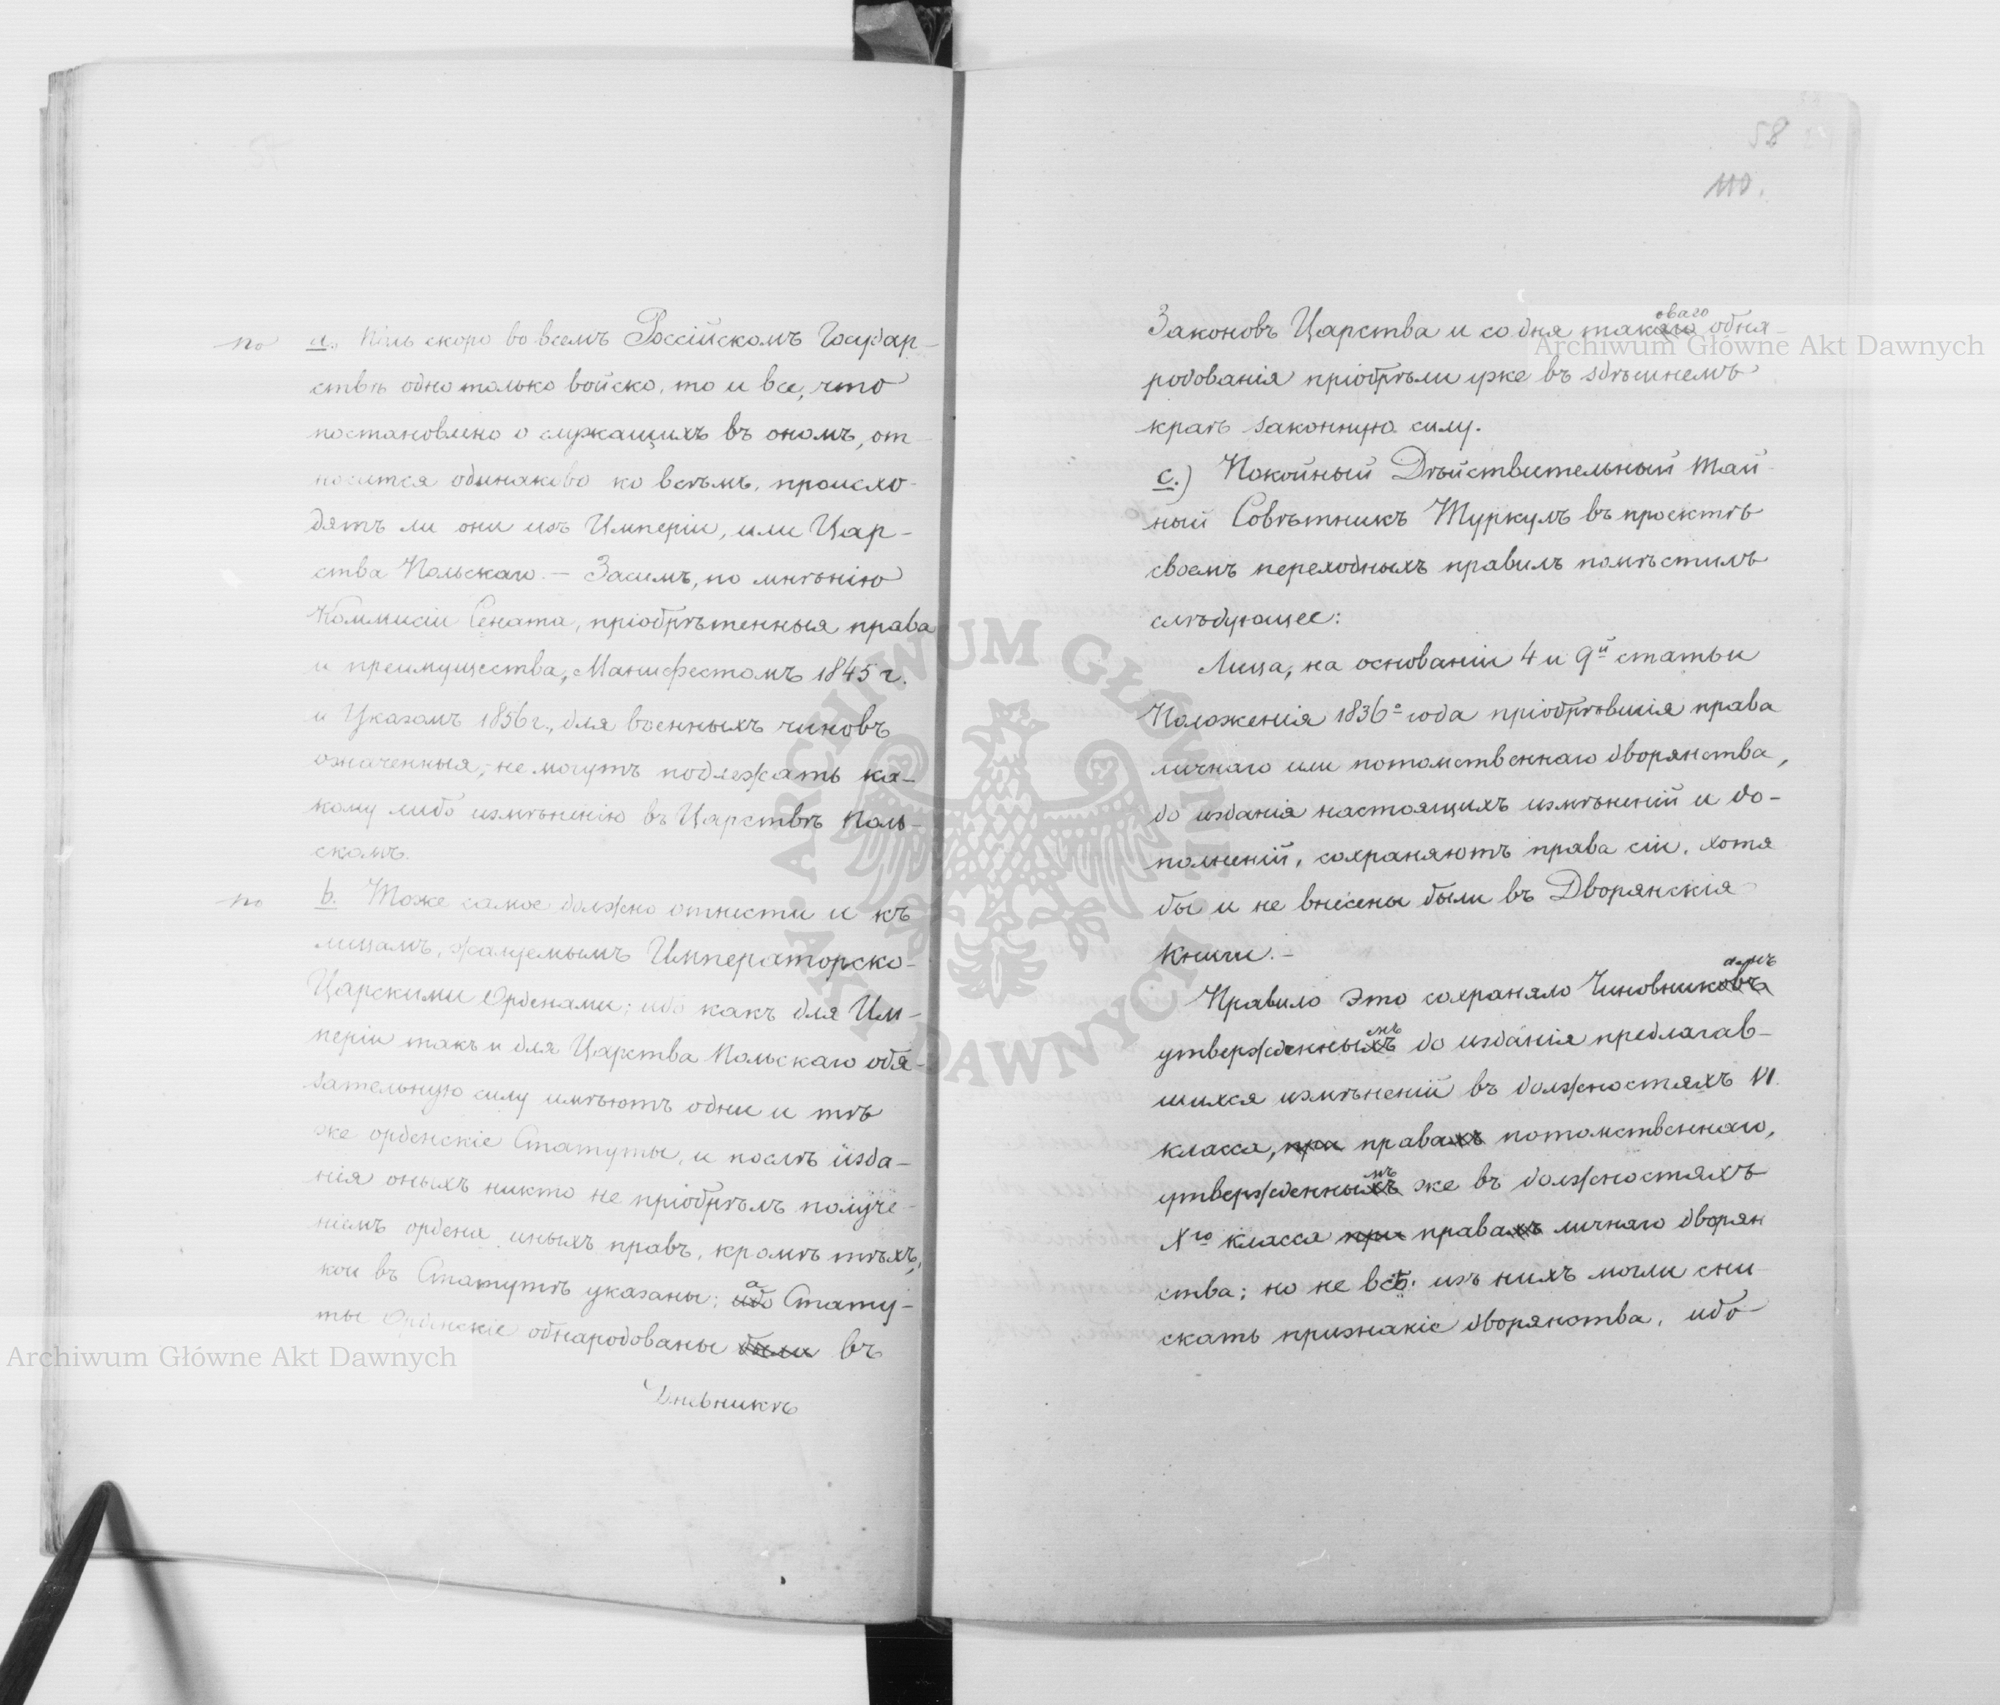 по а. Коль скоро во всемъ Россійскомъ Государ-
ствѣ одно только войско, то и все, что
постановлено о служащихъ въ ономъ, от-
носится одинаково ко всѣмъ, происхо-
дятъ ли они изъ Имперіи, или Цар-
ства Польскаго. — Засимъ, по мнѣнію
Коммисіи Сената, пріобрѣтенныя права
и преимущества, Манифестомъ 1845 г.
и Указомъ 1856 г., для военныхъ чиновъ
означенныя, не могутъ подлежать ка-
кому либо измѣненію въ Царствѣ Поль-
скомъ.
по b. Тоже самое должно отнести и къ
лицамъ, жалуемымъ Императорско-
Царскими Орденами; ибо какъ для Им-
періи такъ и для Царства Польскаго обя-
зательную силу имѣютъ одни и тѣ
же орденскіе Статуты, и послѣ изда-
нія оныхъ никто не пріобрѣлъ получе-
ніемъ ордена иныхъ правъ, кромѣ тѣхъ,
кои въ Статутѣ указаны; ибо а Стату-
ты Орденскіе обнародованы были въ
Дневникѣ
58
110.
Законовъ Царства и со дня такаго оваго обна-
родованія пріобрѣли уже въ здѣшнемъ
краѣ законную силу.
c.) Покойный Дѣйствительный Тай-
ный Совѣтникъ Туркулъ въ проектѣ
своемъ переходныхъ правилъ помѣстилъ
слѣдующее:
Лица, на основаніи 4 и 9й статьи
Положенія 1836о года пріобрѣвшія права
личнаго или потомственнаго дворянства,
до изданія настоящихъ измѣненій и до-
полненій, сохраняютъ права сіи, хотя
бы и не внесены были въ Дворянскія
книги. —
Правило это сохраняло Чиновниковъ амъ
утвержденныхъ мъ до изданія предлагав-
шихся измѣненій въ должностяхъ VI.
класса, при правахъ потомственнаго,
утвержденныхъ мъ же въ должностяхъ
Xго класса при правахъ личнаго дворян
ства; но не всѣ изъ нихъ могли сни-
скать признаніе дворянства, ибо
Archiwum Główne Akt Dawnych
Archiwum Główne Akt Dawnych
ARCHIWUM GŁÓWNE AKT DAWNYCH